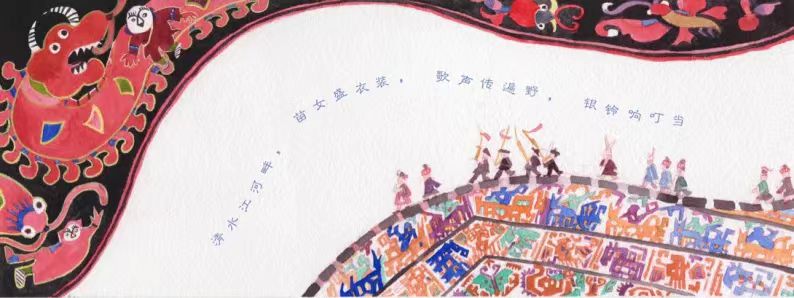 清水江河畔，苗女盛衣装，歌声传遍野，银铃响叮当